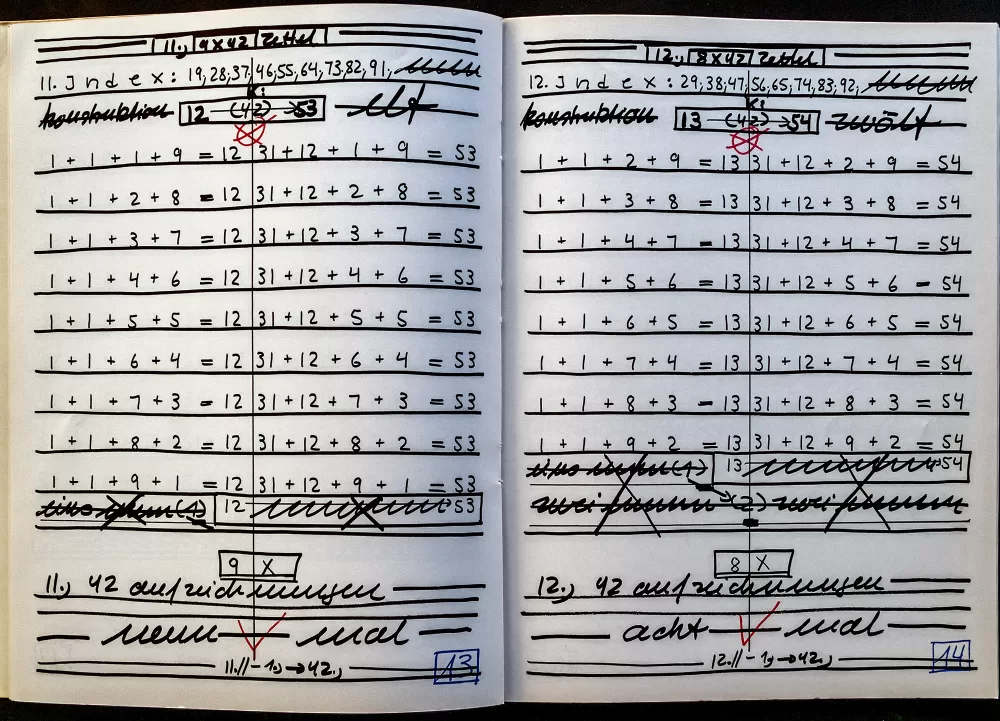 11., 9x42 Zettel
11. Index: 19,28,37,46,55,64,73,82,91,
K:
konstruktion 12 (42) → 53 elf
1 + 1 + 1 + 9 = 12 31 + 12 + 1 + 9 = 53
1 + 1 + 2 + 8 = 12 31 + 12 + 2 + 8 = 53
1 + 1 + 3 + 7 = 12 31 + 12 + 3 + 7 = 53
1 + 1 + 4 + 6 = 12 31 + 12 + 4 + 6 = 53
1 + 1 + 5 + 5 = 12 31 + 12 + 5 + 5 = 53
1 + 1 + 6 + 4 = 12 31 + 12 + 6 + 4 = 53
1 + 1 + 7 + 3 = 12 31 + 12 + 7 + 3 = 53
1 + 1 + 8 + 2 = 12 31 + 12 + 8 + 2 = 53
1 + 1 + 9 + 1 = 12 31 + 12 + 9 + 1 = 53
(1) 12 53
9 X
11., 42 aufzeichnungen
neun mal
11.// - 1., → 42.,
13
12., 8x42 Zettel
12. Index: 29,38,47,56,65,74,83,92,
K:
konstruktion 13 (42) → 54 zwölf
1 + 1 + 2 + 9 = 13 31 + 12 + 2 + 9 = 54
1 + 1 + 3 + 8 = 13 31 + 12 + 3 + 8 = 54
1 + 1 + 4 + 7 = 13 31 + 12 + 4 + 7 = 54
1 + 1 + 5 + 6 = 13 31 + 12 + 5 + 6 = 54
1 + 1 + 6 + 5 = 13 31 + 12 + 6 + 5 = 54
1 + 1 + 7 + 4 = 13 31 + 12 + 7 + 4 = 54
1 + 1 + 8 + 3 = 13 31 + 12 + 8 + 3 = 54
1 + 1 + 9 + 2 = 13 31 + 12 + 9 + 2 = 54
(1) 13 54
zwei (2) zwei
8 X
12., 42 aufzeichnungen
acht mal
12.// - 1., → 42.,
14